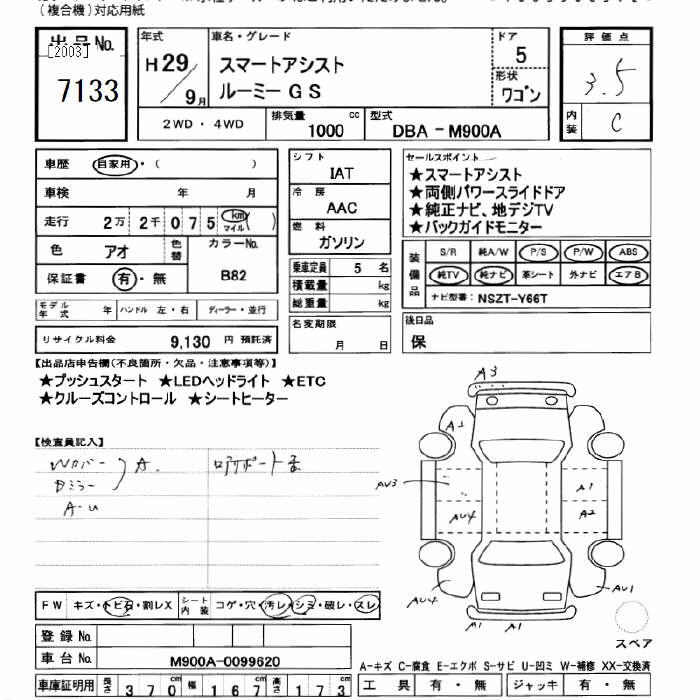 (複合機)対応用紙
出品No.
[2003]
7133
年式
H29/9月
車名・グレード
スマートアシスト
ルーミーGS
ドア
5
形状
ワゴン
評価点
3.5
内装
C
2WD・4WD
排気量 1000 cc
型式 DBA-M900A
車歴 自家用・( )
車検 年 月
走行 2万 2千 0 7 5 km マイル ( )
色 アオ 色替
カラーNo. B82
保証書 有・無
モデル年式 年 ハンドル 左・右 ディーラー・並行
リサイクル料金 9,130 円 預託済
シフト
IAT
冷房
AAC
燃料
ガソリン
乗車定員 5 名
積載量 kg
総重量 kg
名変期限
月 日
セールスポイント
★スマートアシスト
★両側パワースライドドア
★純正ナビ、地デジTV
★バックガイドモニター
装備品
S/R 純A/W P/S P/W ABS
純TV 純ナビ 革シート 外ナビ エアB
ナビ型番: NSZT-Y66T
後日品
保
【出品店申告欄(不良箇所・欠品・注意事項等)】
★プッシュスタート ★LEDヘッドライト ★ETC
★クルーズコントロール ★シートヒーター
【検査員記入】
Wカバー
Bミラー
A.
A-U
A3
A2
AU3
AU4
A1
A2
AU4
AU1
A1
A1
スペア
FW キズ・トビ石・割レX
シート内装 コゲ・穴・汚レ・シミ・破レ・スレ
登録No.
車台No. M900A-0099620
車庫証明用 長さ 370 cm 幅 167 cm 高さ 173 cm
A-キズ C-腐食 E-エクボ S-サビ U-凹ミ W-補修 XX-交換済
工具 有・無 ジャッキ 有・無